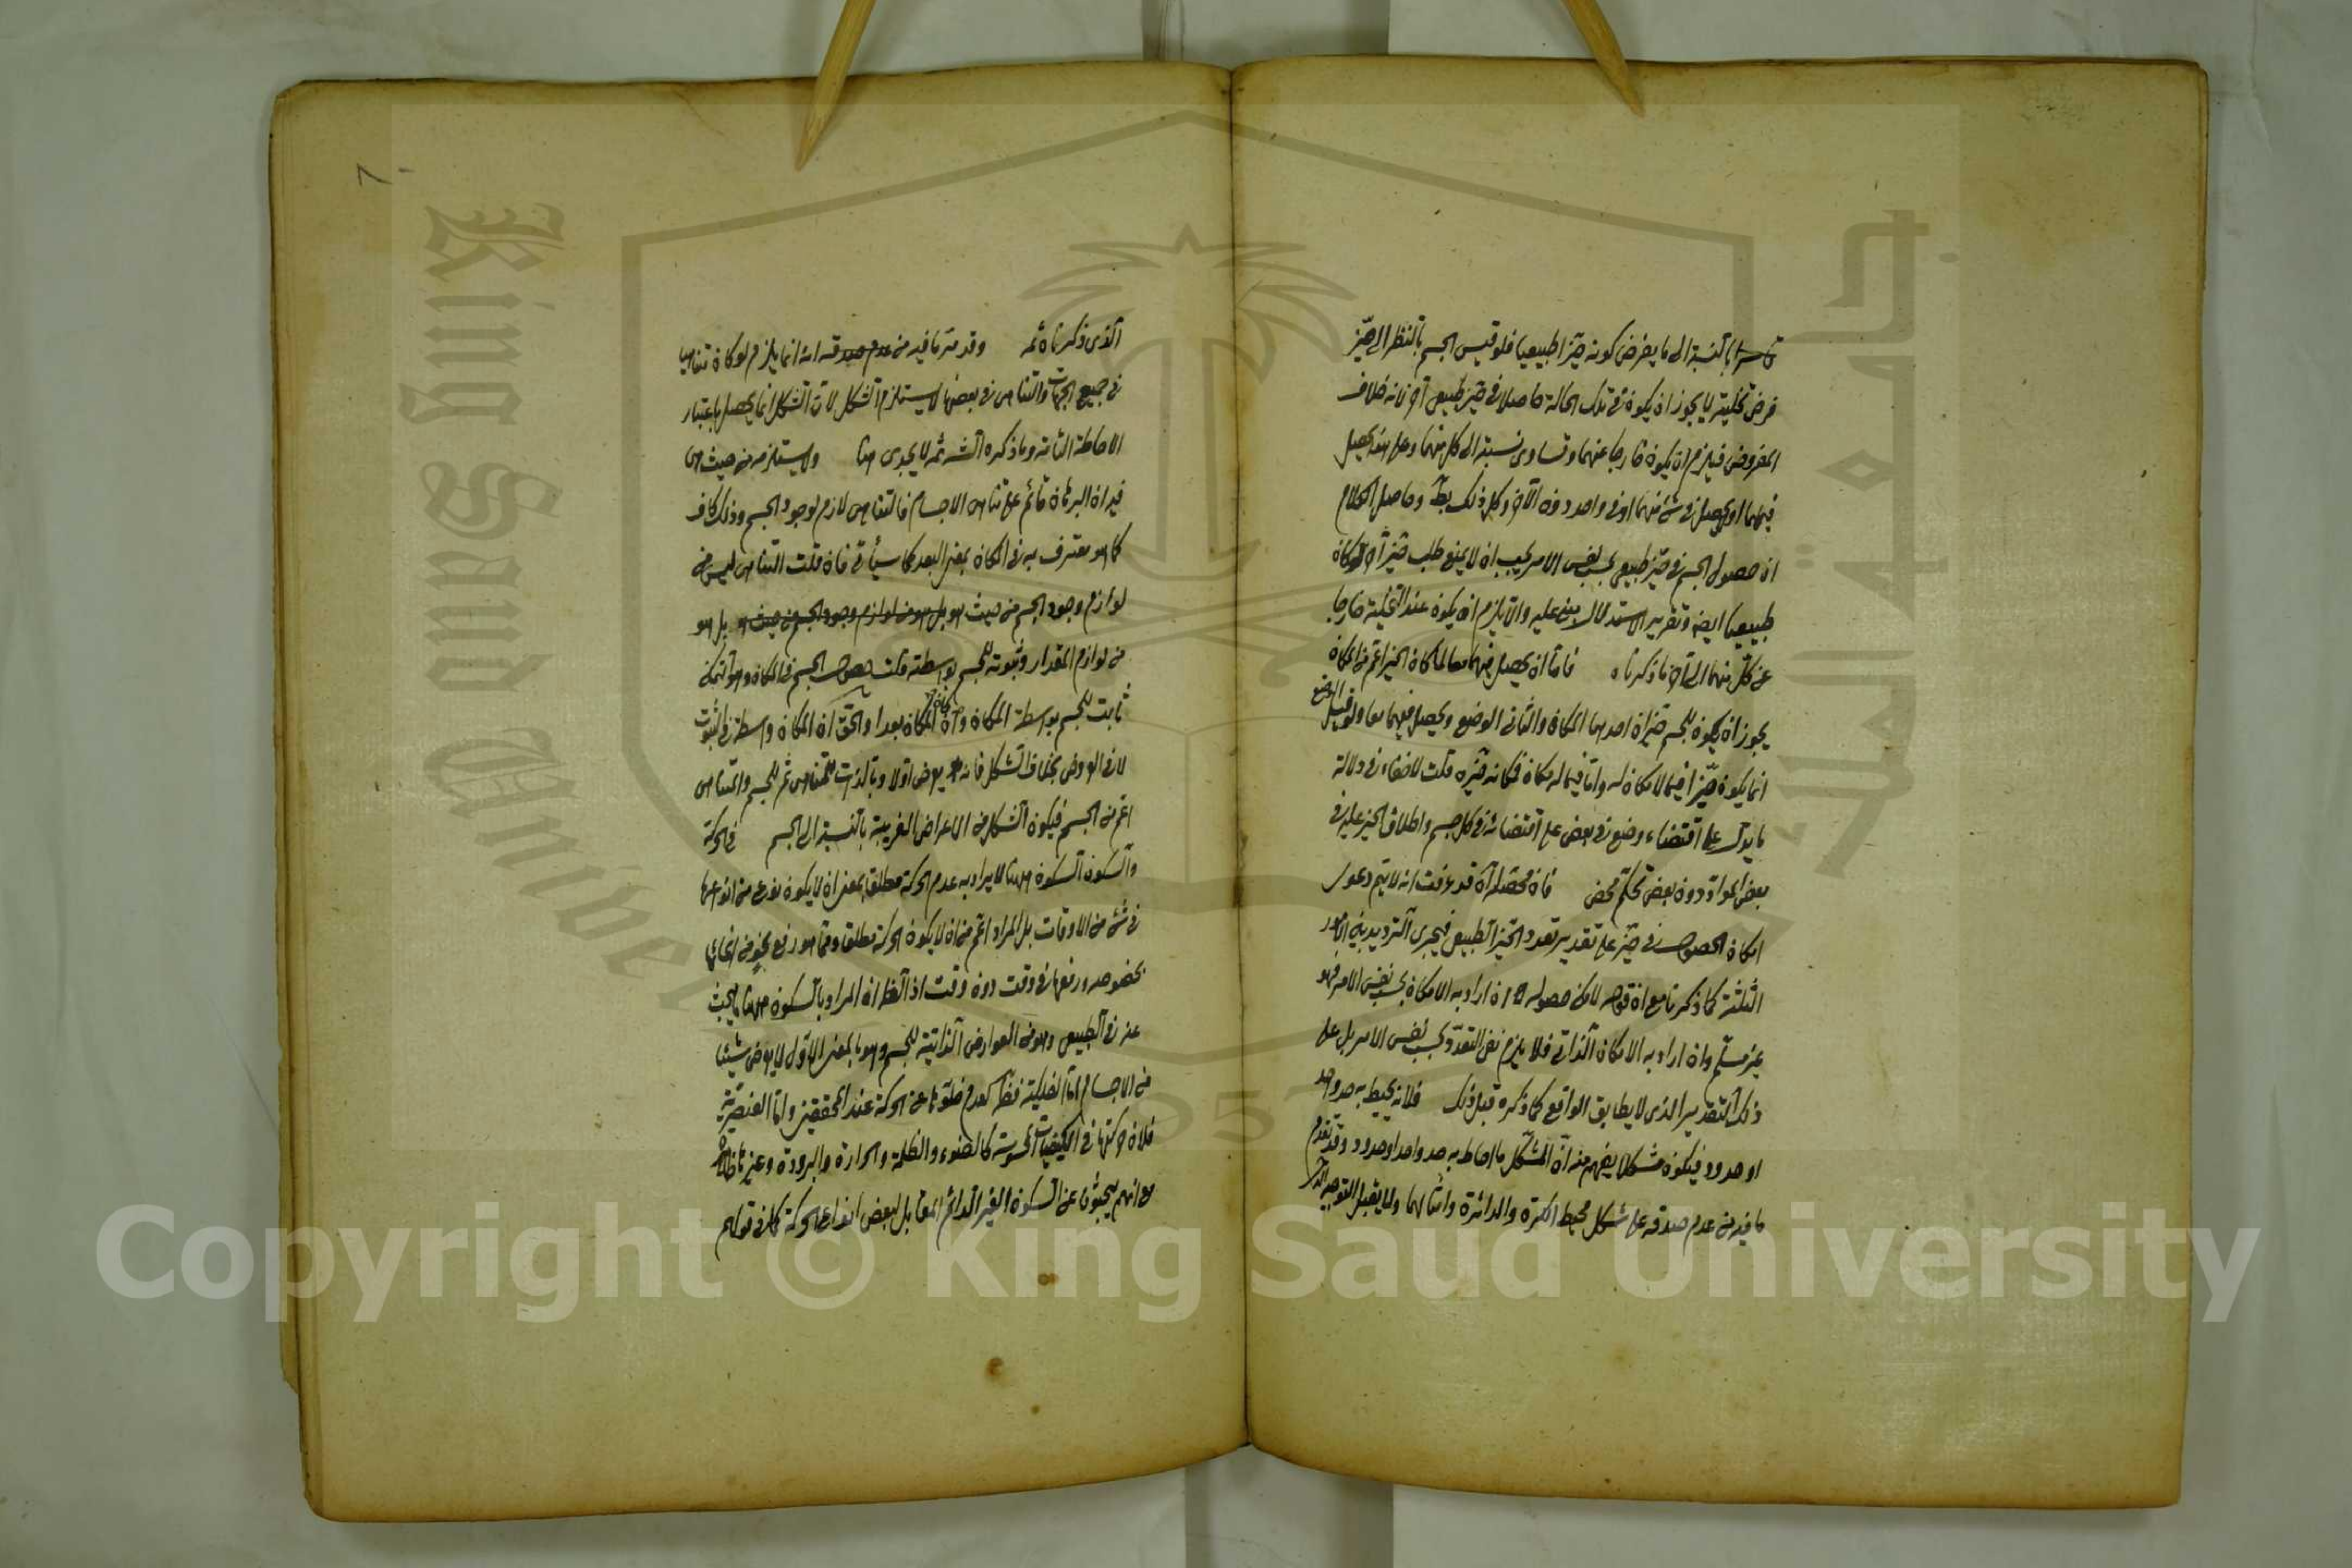 قاسرا بالنسبة الى ما يفرض كونه حيزا طبيعيا فلو قيس الجسم بالنظر الى حيز
فرض تخليته لا يجوز ان يكون فى تلك الحالة حاصلا فى حيز طبيعى آخر لانه خلاف
المفروض فيلزم ان يكون خارجا عنهما وتساوى نسبته الى كل منهما وعلى هذا يحصل
فيهما او يحصل فى شئ منهما او فى واحد دون الآخر وكل ذلك بط وحاصل الكلام
ان حصول الجسم فى حيز طبيعى بحسب نفس الامر يجب ان لا يمنع طلب حيز آخر لو كان
طبيعيا ايضا وتقرير الاستدلال مبنى عليه والا يلزم ان يكون عند التخلية خارجا
عن كل منهما الى آخر ما ذكرناه فاما ان يحصل فيهما معا لما كان الحيز اعم من المكان
يجوز ان يكون للجسم حيزان احدهما المكان والثانى الوضع ويحصل فيهما معا ولو قيل الوضع
انما يكون حيزا فيما لا مكان له واما فيما له مكان فمكانه حيزه قلت لا خفاء فى دلالة
ما يدل على اقتضاء وضع فى بعض على اقتضائه فى كل جسم واطلاق الحيز عليه فى
بعض المواد دون بعض تحكم محض فان محصله آه قد عرفت انه لا يتم دعوى
امكان الحصول فى حيز على تقدير تعدد الحيز الطبيعى فيجرى الترديد بين الامور
الثلثة كما ذكرنا مع ان قوله لامكن حصوله ان اراد به الامكان بحسب نفس الامر فهو
غير مسلم وان اراد به الامكان الذاتى فلا يلزم نفى التعدد بحسب نفس الامر بل على
ذلك التقدير الذى لا يطابق الواقع كما ذكره قبل ذلك فلانه يحيط به حد واحد
او حدود فيكون مشكلا يفهم منه ان المشكل ما احاط به حد واحد او حدود وقد تقدم
ما فيه من عدم صدقه على شكل محيط الكرة والدائرة وامثالهما ولا يقبل التوجيه
الذى ذكرناه ثمه وقد مر ما فيه من عدم صدقه انه انما يلزم لو كان تناهيا
فى جميع الجهات والتناهى فى بعضها لا يستلزم الشكل لان الشكل انما يحصل باعتبار
الاحاطة التامة وما ذكره الش ثمه لا يجدى هنا ولا يستلزمه من حيث هى
فيه ان البرهان قائم على تناهى الاجسام فالتناهى لازم لوجود الجسم وذلك كاف
كما هو معترف به فى المكان بمعنى البعد كما سيأتى فان قلت التناهى ليس من
لوازم وجود الجسم من حيث هو بل هو من لوازم وجود الجسم من حيث هو بل هو
من لوازم المقدار وثبوته للجسم بواسطته قلت حصول الجسم فى المكان وهو التمكن
ثابت للجسم بواسطة المكان وان كان المكان بعدا والحق ان المكان واسطة فى الثبوت
لا فى العروض بخلاف الشكل فانه يعرض اولا وبالذات للمتناهى ثم للجسم والمتناهى
اعم من الجسم فيكون الشكل من الاعراض الغريبة بالنسبة الى الجسم فى الحركة
والسكون السكون ههنا لا يراد به عدم الحركة مطلقا بمعنى ان لا يكون نوع من انواعها
فى شئ من الاوقات بل المراد اعم من ان لا يكون الحركة مطلقا وقتا هو رفع نحو من انحائها
بخصوصه ورفعها فى وقت دون وقت اذ الظ ان المراد بالسكون ههنا ما يبحث
عنه فى الطبيعى وهو من العوارض الذاتية للجسم وهو بالمعنى الاول لا يعرض شيئا
من الاجسام اما الفلكية فظ لعدم خلوها عن الحركة عند المحققين واما العنصرية
فلان حركتها فى الكيفيات المحسوسة كالضوء والظلمة والحرارة والبرودة وغيرها ظاهرة
مع انهم يبحثون عن السكون الغير الدائم المقابل لبعض انواع الحركة كما فى قولهم